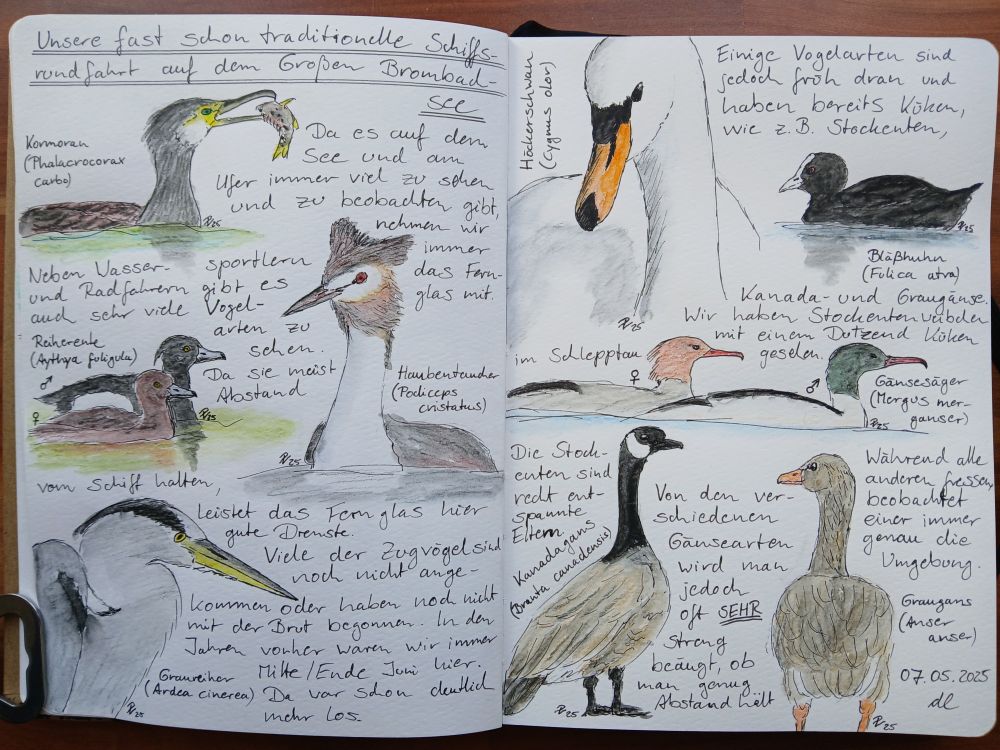 Unsere fast schon traditionelle Schiffs-
rundfahrt auf dem Großen Brombach-
see
Kormoran
(Phalacrocorax
carbo)
Da es auf dem
See und am
Ufer immer viel zu sehen
und zu beobachten gibt,
nehmen wir
immer
das Fern-
glas mit.
Neben Wasser- sportlern
und Radfahrern gibt es
auch sehr viele Vogel-
arten zu
sehen.
Da sie meist
Abstand
Reiherente
(Aythya fuligula)
♂
♀
Haubentaucher
(Podiceps
cristatus)
vom Schiff halten,
leistet das Fernglas hier
gute Dienste.
Viele der Zugvögel sind
noch nicht ange-
kommen oder haben noch nicht
mit der Brut begonnen. In den
Jahren vorher waren wir immer
Mitte/Ende Juni hier.
Da war schon deutlich
mehr los.
Graureiher
(Ardea cinerea)
Höckerschwan
(Cygnus olor)
Einige Vogelarten sind
jedoch früh dran und
haben bereits Küken,
wie z.B. Stockenten,
Bläßhuhn
(Fulica atra)
Kanada- und Graugänse.
Wir haben Stockentenweibchen
mit einem Dutzend Küken
im Schlepptau gesehen.
♀
♂
Gänsesäger
(Mergus mer-
ganser)
Die Stock-
enten sind
recht ent-
spannte
Eltern.
Kanadagans
(Branta canadensis)
Von den ver-
schiedenen
Gänsearten
wird man
jedoch
oft SEHR
streng
beäugt, ob
man genug
Abstand hält
Während alle
anderen fressen,
beobachtet
einer immer
genau die
Umgebung.
Graugans
(Anser
anser)
07.05.2025